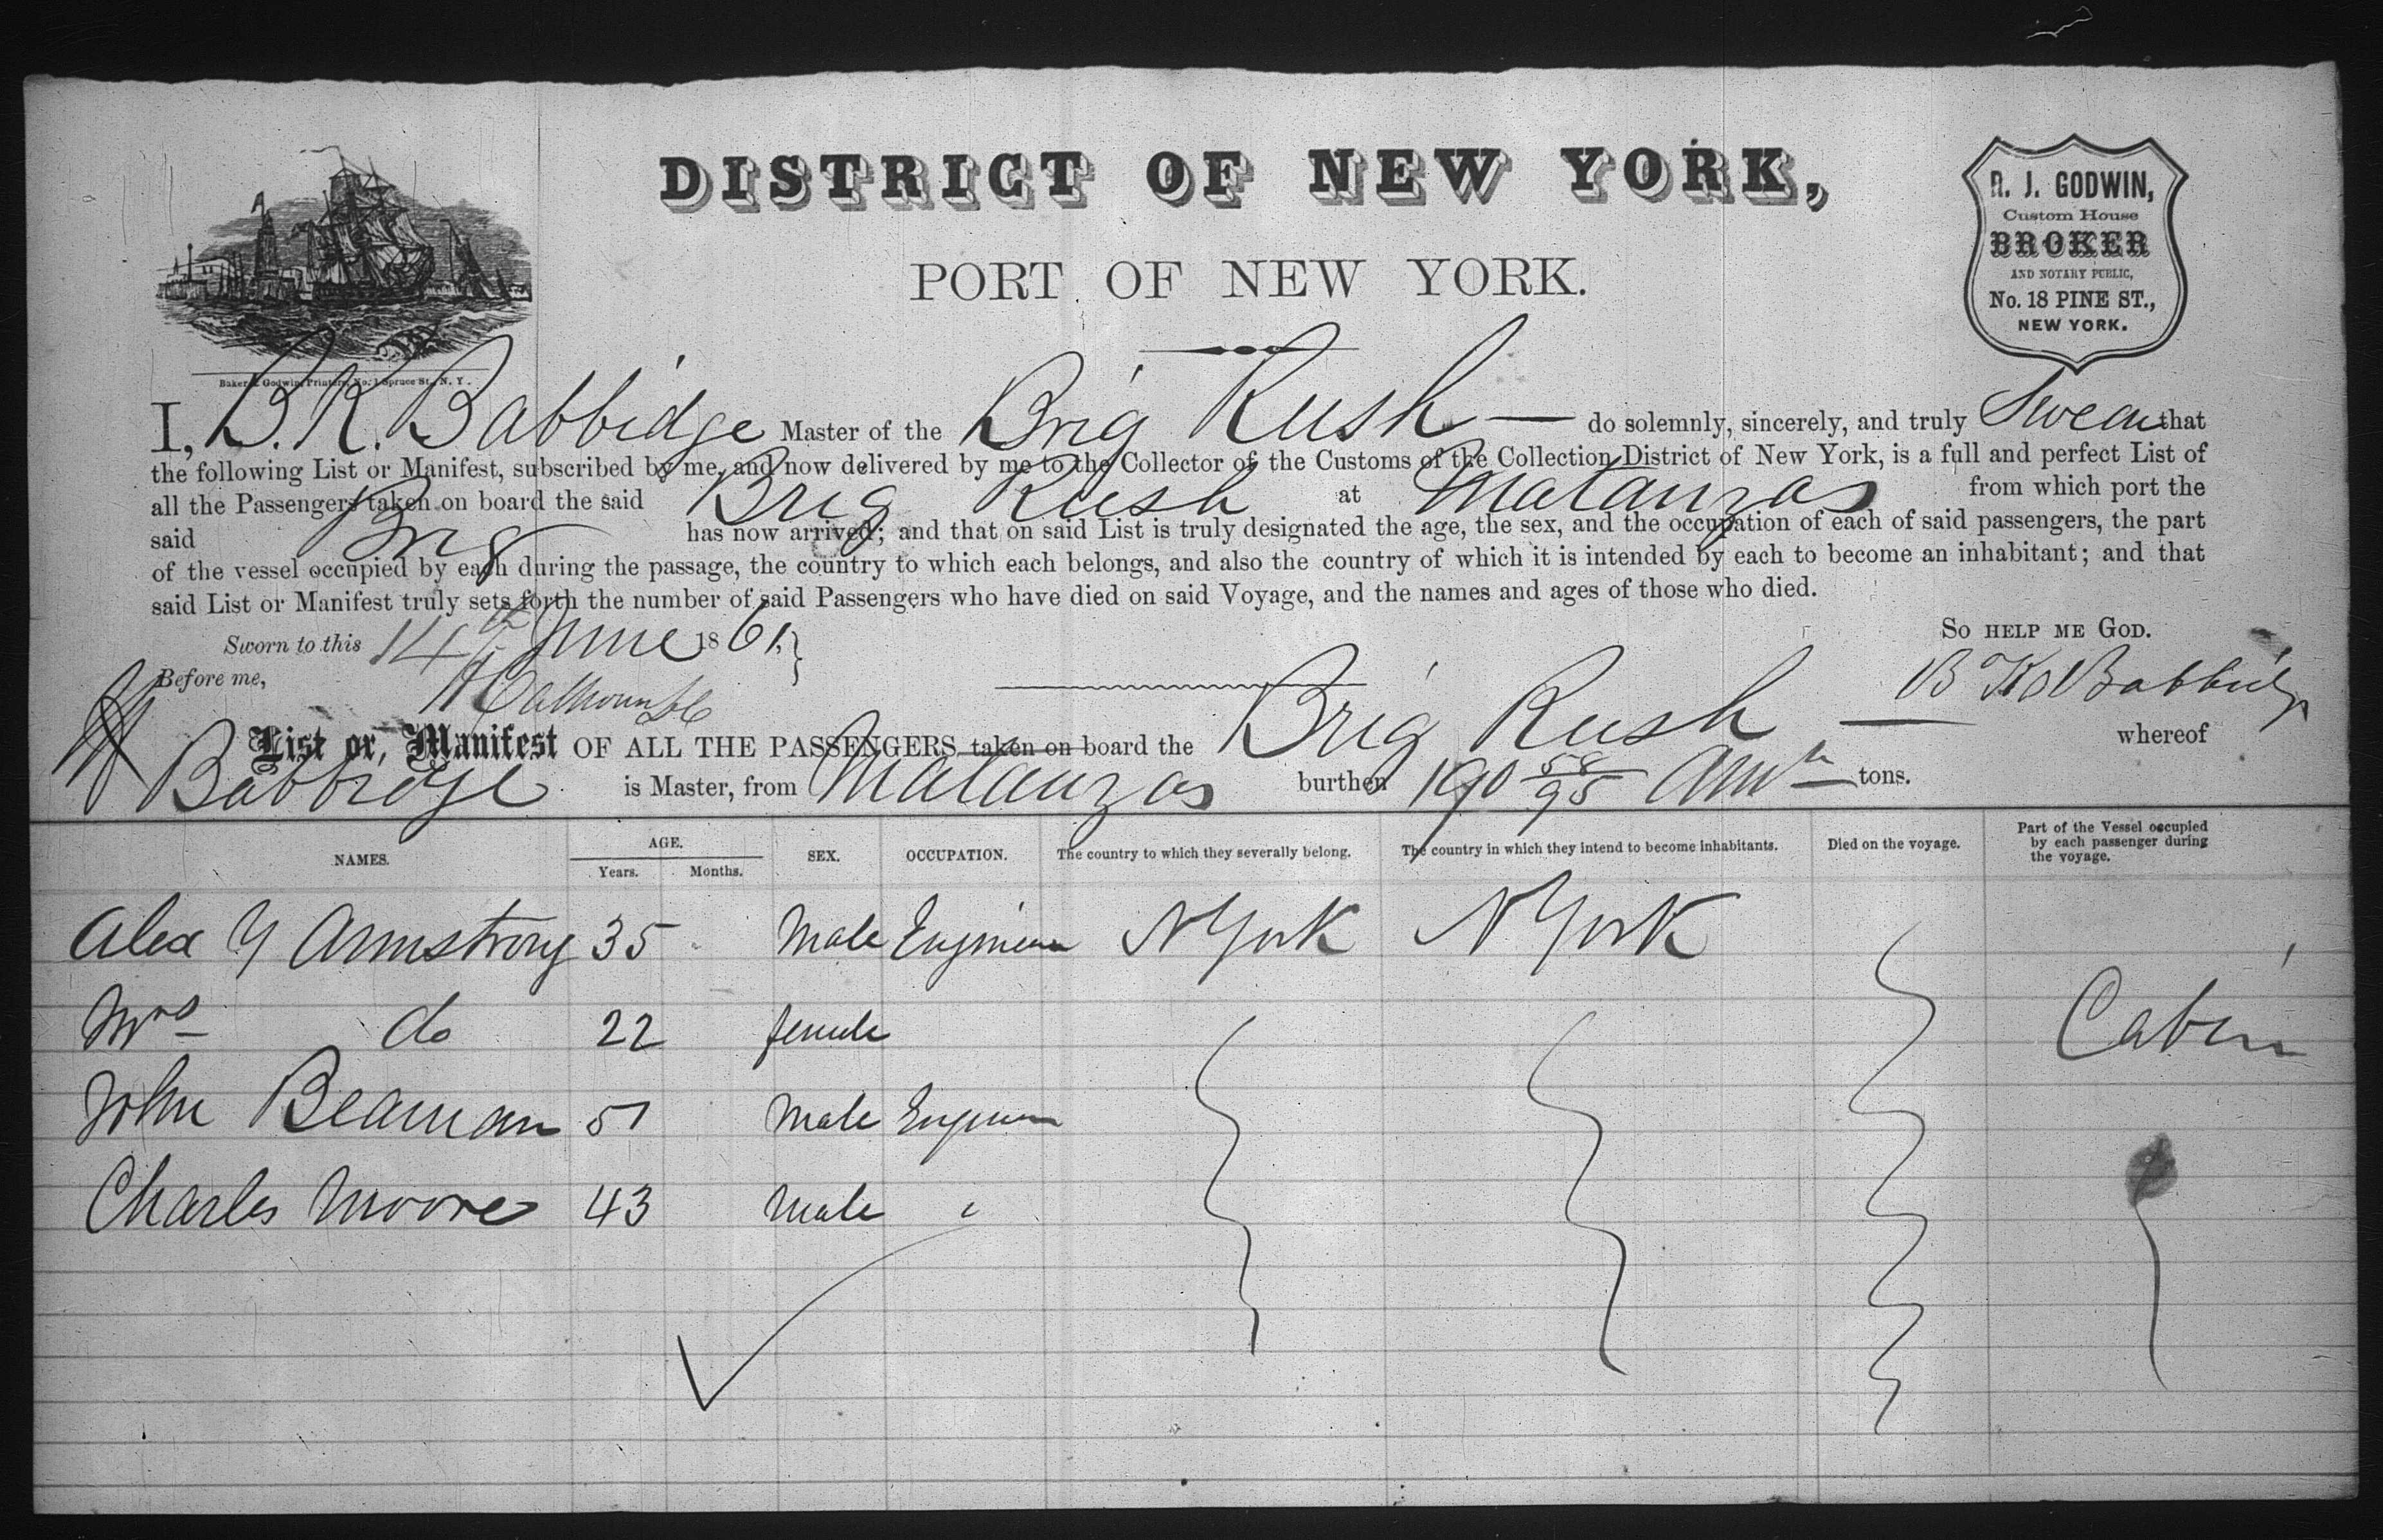 DISTRICT OF NEW YORK,
PORT OF NEW YORK.
R. J. GODWIN,
Custom House
BROKER
AND NOTARY PUBLIC,
No. 18 PINE ST.,
NEW YORK.
Baker & Godwin, Printers, No. 1 Spruce St., N. Y.
I, B. K. Babbidge Master of the Brig Rush — do solemnly, sincerely, and truly Swear that
the following List or Manifest, subscribed by me, and now delivered by me to the Collector of the Customs of the Collection District of New York, is a full and perfect List of
all the Passengers taken on board the said Brig Rush at Matanzas from which port the
said Brig has now arrived; and that on said List is truly designated the age, the sex, and the occupation of each of said passengers, the part
of the vessel occupied by each during the passage, the country to which each belongs, and also the country of which it is intended by each to become an inhabitant; and that
said List or Manifest truly sets forth the number of said Passengers who have died on said Voyage, and the names and ages of those who died.
Sworn to this 14th June 1861. SO HELP ME GOD.
Before me, B K Babbidge
Calhoun
List or Manifest OF ALL THE PASSENGERS taken on board the Brig Rush — whereof
Babbidge is Master, from Matanzas burthen 190 58/95 tons.
NAMES. AGE. Years. Months. SEX. OCCUPATION. The country to which they severally belong. The country in which they intend to become inhabitants. Died on the voyage. Part of the Vessel occupied by each passenger during the voyage.
Alex Y Armstrong 35 Male Engineer N York N York
Mrs do 22 female Cabin
John Beaman 51 Male Engineer
Charles Moore 43 Male "